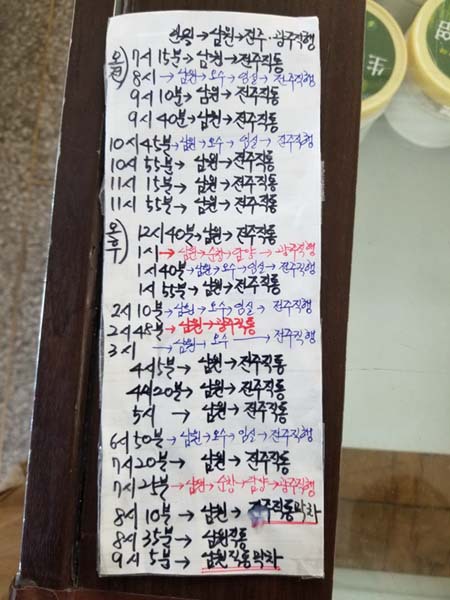 인월→남원→전주·광주직행
오전
7시 15분→남원→전주직통
8시→남원→오수→임실→전주직행
9시 10분→남원→전주직통
9시 40분→남원→전주직통
10시 45분→남원→오수→임실→전주직행
10시 55분→남원→전주직통
11시 15분→남원→전주직통
11시 55분→남원→전주직통
오후
12시 40분→남원→전주직통
1시→남원→순창→담양→광주직행
1시 40분→남원→오수→임실→전주직행
1시 55분→남원→전주직통
2시 10분→남원→오수→임실→전주직행
2시 48분→남원→광주직통
3시→남원→오수→전주직행
4시 5분→남원→전주직통
4시 20분→남원→전주직통
5시→남원→전주직통
6시 50분→남원→오수→임실→전주직행
7시 20분→남원→전주직통
7시 25분→남원→순창→담양→광주직행
8시 10분→남원→전주직통막차
8시 35분→남원직통
9시 5분→남원직통막차
生